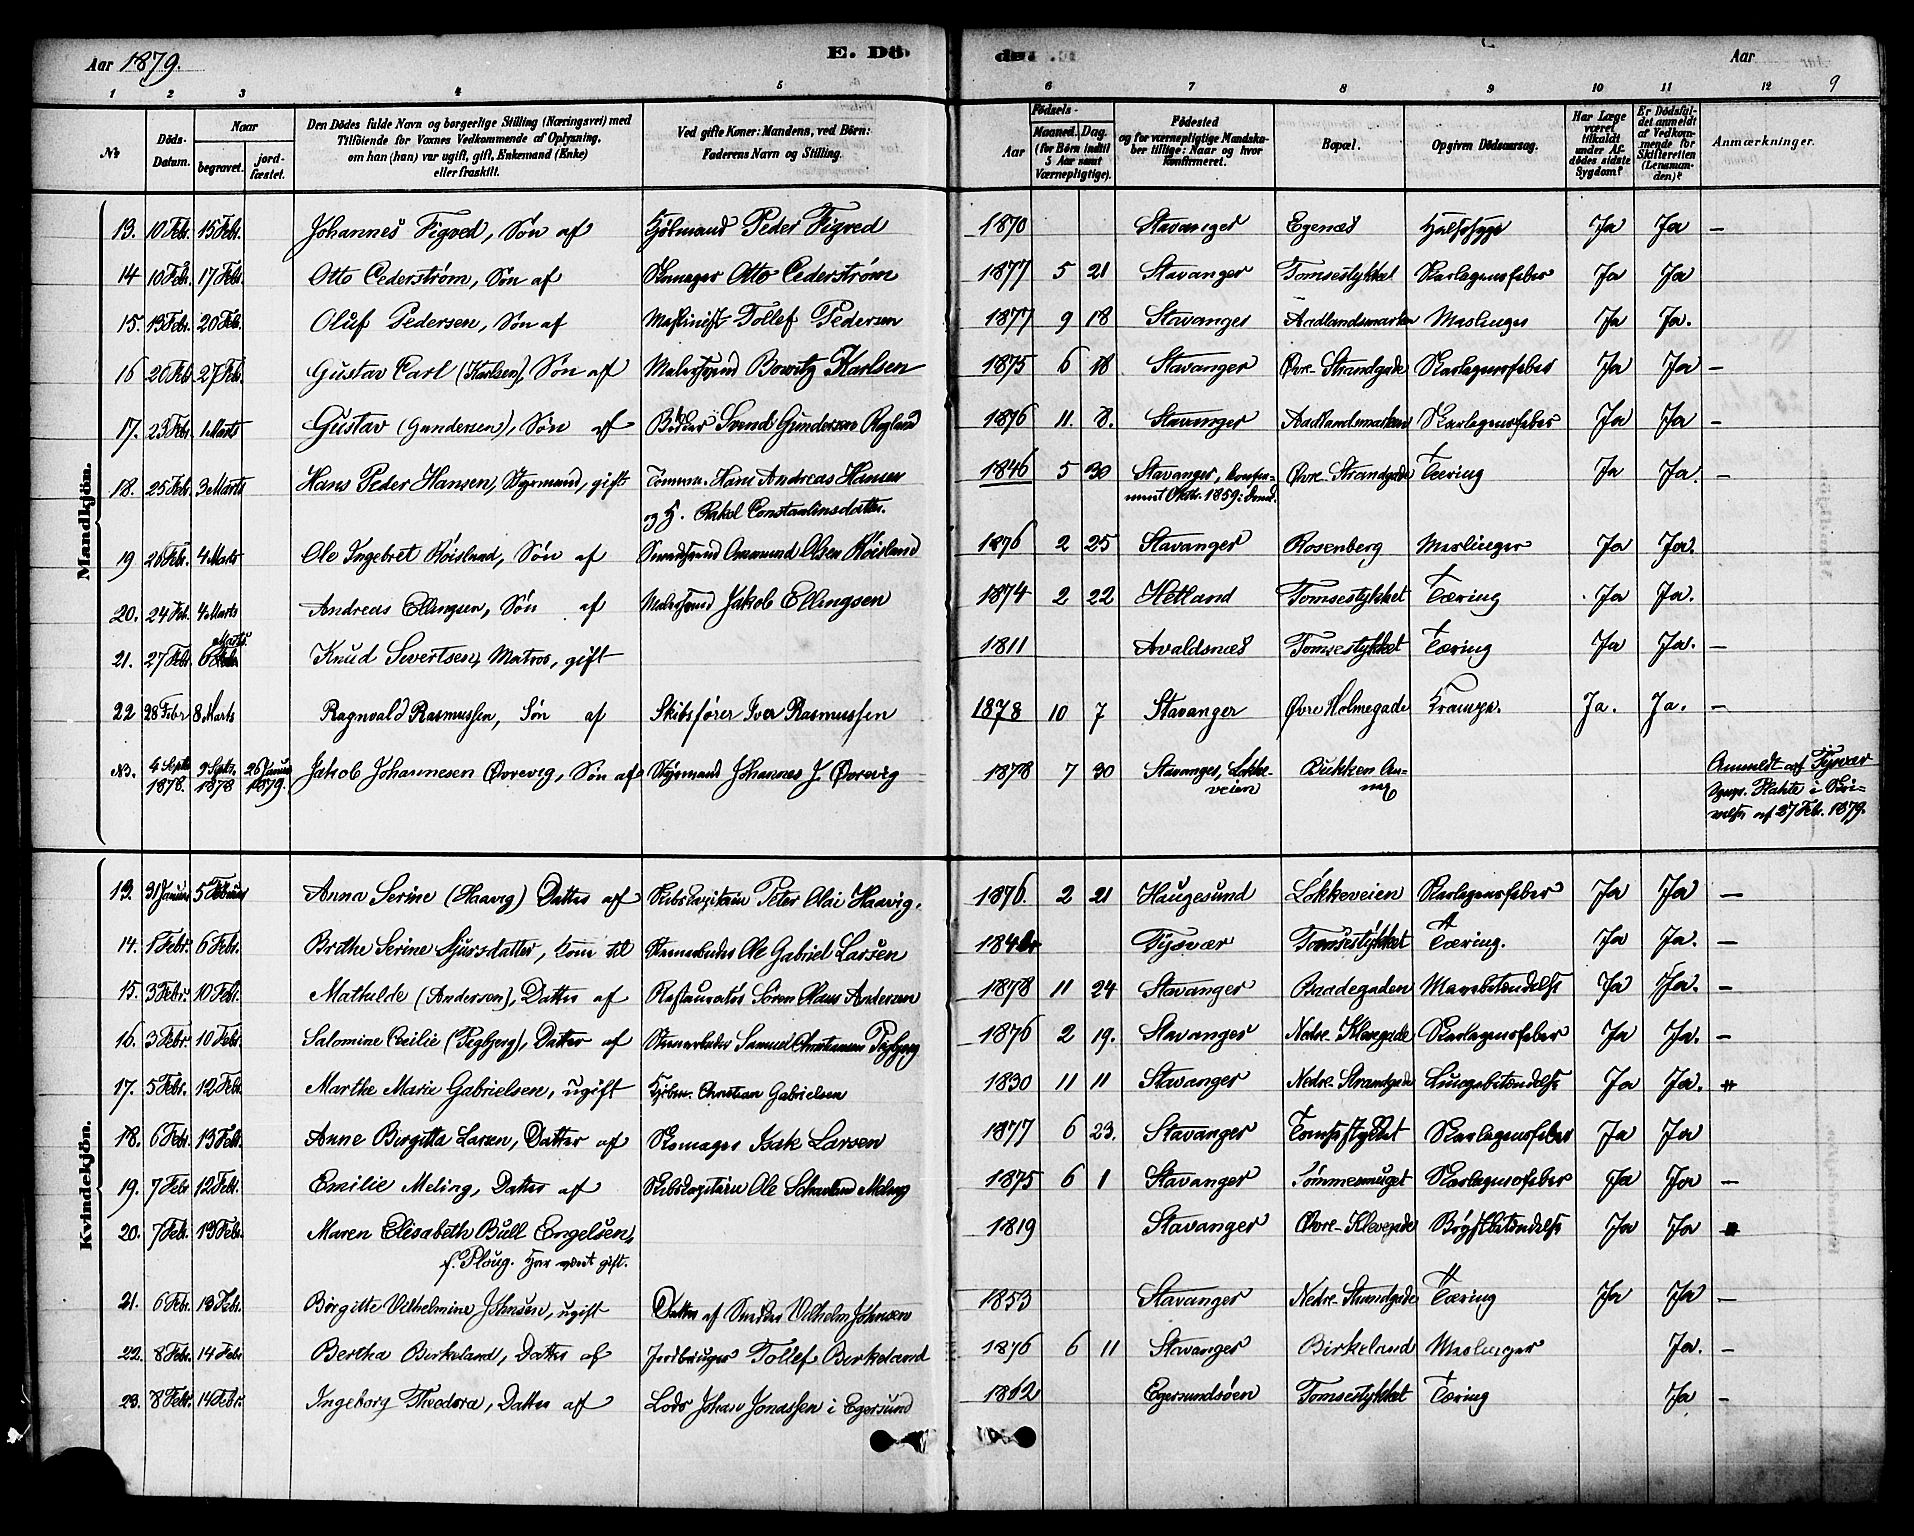 Aar 1879. E. Dö- de. Aar 9
1 2 3 4 5 6 7 8 9 10 11 12
No Döds-Datum. Naar begravet. jordfæstet. Den Dödes fulde Navn og borgerlige Stilling (Næringsvei) med Tilföiende for Voxnes Vedkommende af Oplysning, om han (hun) var ugift, gift, Enkemand (Enke) eller fraskilt. Ved gifte Koner: Mandens, ved Börn: Faderens Navn og Stilling. Födsels- Aar Maaned. Dag. (for Börn indtil 5 Aar samt Værnepligtige). Födested og for værnepligtige Mandskaber tillige: Naar og hvor konfirmeret. Bopæl. Opgiven Dödsaarsag. Har Læge været tilkaldt under Afdödes sidste Sygdom? Er Dödsfaldet anmeldt af Vedkommende for Skifteretten (Lensmanden)? Anmærkninger.
Mandkjön.
13. 10 Febr. 15 Febr. Johannes Figved, Søn af Kjøbmand Peder Figved 1870 Stavanger Egenæs Halssyge Ja Ja —
14 10 Febr. 17 Febr. Otto Cederstrøm, Søn af Skomager Otto Cederstrøm 1877 5 21 Stavanger Tomsestykket Skarlagensfeber Ja Ja
15. 13 Febr. 20 Feb. Oluf Pedersen, Søn af Maskinist Tollef Pedersen 1877 9 18 Stavanger Aadlandsmarken Meslinger Ja Ja.
16 20 Feb 27 Feb. Gustav Carl (Karlsen), Søn af Malersvend Karlsen 1875 6 18 Stavanger Øvre Strandgade Skarlagensfeber Ja Ja —
17. 23 Febr. 1 Marts Gustav (Gundersen), Søn af Bødker Svend Gundersen Rogland 1876 11. 8. Stavanger Aadlandsmarken Skarlagensfeber Ja Ja —
18. 25 Feb. 3 Marts Hans Peder Hansen, Styrmand, gift Tømmm. Hans Andreas Hansen 1846 5 30 Stavanger, konfir- Øvre Strandgade Tæring Ja Ja. —
og H. Rakel Constantinsdatter. meret Oktbr. 1859:
19 26 Febr. 4 Marts Ole Ingebret Røisland, Søn af Aanmund Olsen Røisland 1876 2 25 Stavanger Rosenberg Meslinger Ja Ja.
20. 24 Feb. 4 Marts Andreas Ellingsen, Søn af Malersvend Jakob Ellingsen 1874 2 22 Hetland Tomsestykket Tæring Ja Ja.
21. 27 Feb 6 Marts Knud Sivertsen, Matros, gift 1811 Avaldsnæs Tomsestykket Tæring Ja Ja. —
22 28 Febr 8 Marts Ragnvald Rasmussen, Søn af Skibsfører Iver Rasmussen 1878 10 7 Stavanger Øvre Holmegade Krampe. Ja. Ja. —
No. 4 Septb 1878. 9 Septb. 1878 26 Januar 1879. Jakob Johannesen Øvrevig, Søn af Styrmand Johannes J. Øvrevig 1878 7 30 Stavanger, Løkkeveien Anmeldt af Tysvær
af 27 Feb. 1879.
Kvindekjön.
13. 31 Januar 5 Februar Anna Serine (Haavig) Datter af Skibskapitain Peter Olai Haavig. 1876. 2 21 Haugesund Løkkeveien Skarlagensfeber Ja Ja —
14. 1 Febr. 6 Febr. Birthe Serine Sjursdatter, Kone til Stenarbeider Ole Gabriel Larsen Tysvær Tomsestykket Tæring. Ja Ja. —
15. 3 Febr. 10 Febr. Mathilde (Andersen), Datter af Restauratør Søren Hans Andersen 1878 11 24 Stavanger Baadegaden Mavebetændelse Ja Ja. —
16. 3 Febr 10 Febr. Salomine Cecilie (Tegbjerg), Datter af Stenarbeider Samuel Christiansen Tegbjerg 1876 2 19. Stavanger Nedre Klevegade Skarlagensfeber Ja Ja. —
17. 5 Febr. 12 Feb. Marthe Marie Gabrielsen, ugift Kjøbm. Christian Gabrielsen 1830 11 11 Stavanger Nedre Strandgade Lungebetændelse Ja Ja.
18. 6 Febr. 13 Feb. Anne Birgitta Larsen, Datter af Skomager Isak Larsen 1877 6 23. Stavanger Tomsestykket Skarlagensfeber Ja Ja
19. 7 Febr 12 Feb. Emilie Meling, Datter af Skibskapitain Ole Meling 1875 6 1 Stavanger Tømmesmuget Skarlagensfeber Ja Ja —
20. 7 Feb. 13 Febr. Maren Elisabeth Bull Engelsen, 1819 Stavanger Øvre Klevegade Brystbetændelse Ja Ja
f. Ploug. Har været gift.
21. 6 Febr. 13 Febr. Birgitte Vilhelmine Johnsen, ugift Datter af Vilhelm Johnsen 1853 Stavanger Nedre Strandgade Tæring Ja Ja —
22. 8 Febr. 14 Febr Bertha Birkeland, Datter af Jordbruger Tollef Birkeland 1876 6 11 Stavanger Birkeland Meslinger Ja. —
23. 8 Febr. 14 Febr. Ingeborg Theodora, Datter af Lods Johan Jonassen i Egersund 1862 Egersundsøen Tomsestykket Tæring Ja —